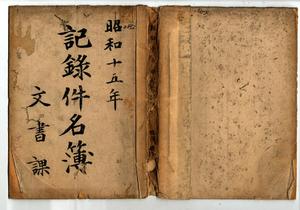 昭和十五年
記錄件名簿
文書課